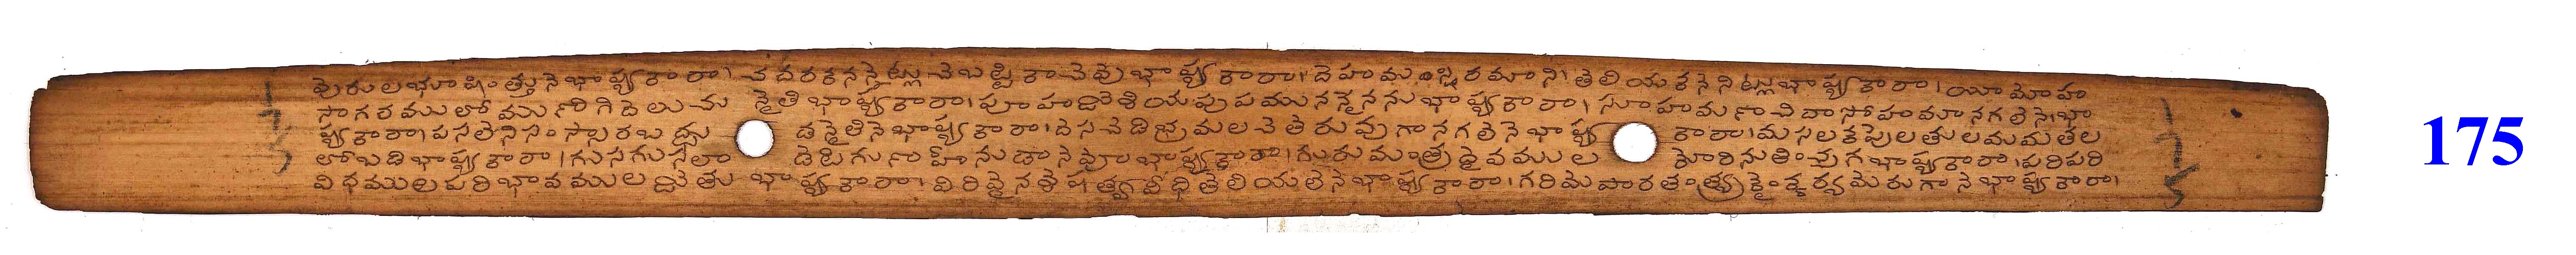 పురుల భూషింత్తునె భాష్యకారా। చదరకనన్నెట్లు చెబట్టికాచెవు భాష్యకారా। దెహముంస్థిరమూని। తెలియకనెనిట్లు భాష్యకారా। యీమోహ
సాగరములో మునిగి దెలుచు న్నైతి భాష్యకారా। పూహదెశియపుపమునన్నైనను భాష్యకారా। సూహమణచి దాసోహమూనగలెనె। భా
ష్యకారా। పసలెని సంస్సారబద్ధు డన్నైతినె భాష్యకారా। దెసచెడి భ్రమలచె తెరువుగానగలెనె భాష్య కారా। మసలక పులతులమమతల
లోబడి భాష్యకారా। గుసగుసలా డెటి గుణహీనుడానె భాష్యకారా। గురుమంత్ర దైవముల కోరి నుతించుగ భాష్యకారా। పరిపరి
విధముల పరిభావముల జెతు భాష్యకారా। విరివైన శెషత్వవిధి తెలియలెనె భాష్యకారా। గరిమె పారతంత్ర్యకైంకర్యమెరుగానె భాష్యకారా।
175